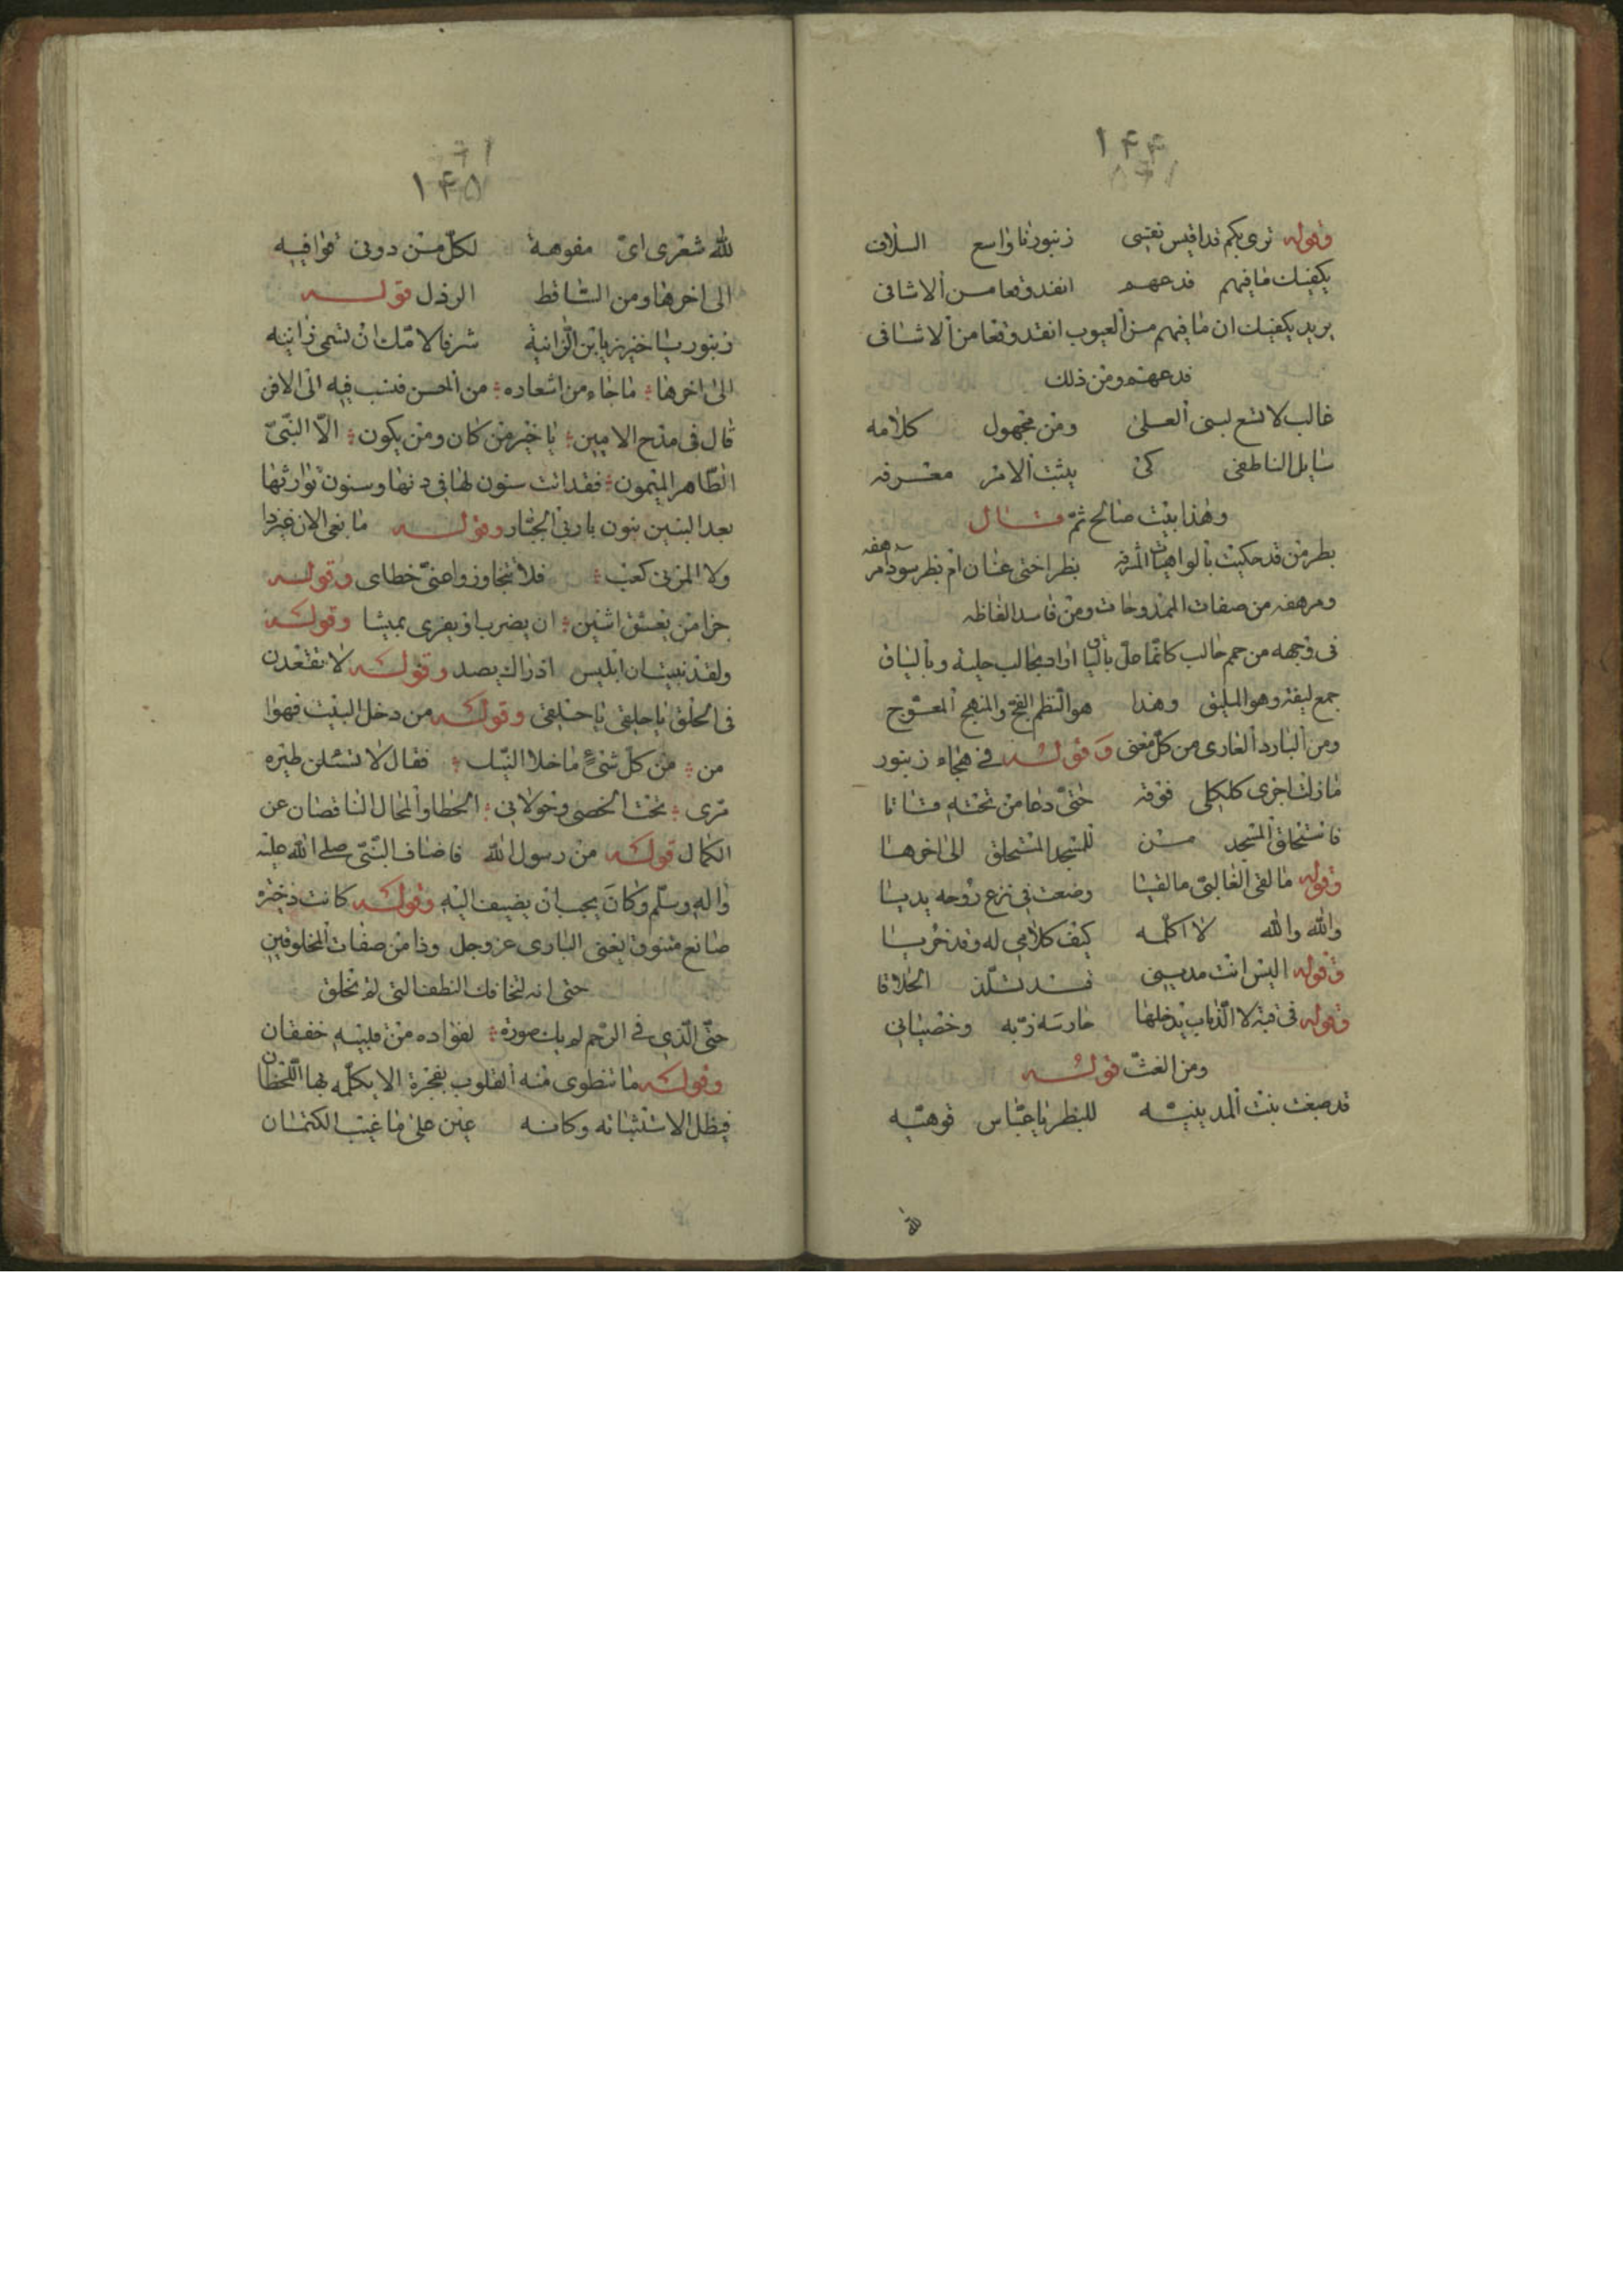 ١۴۴
وقوله ترى بكم قد اقيس نفسى زنبورنا واسع السلاق
يكفيك ما فيهم فدعهم انفد وقعا من الاشافى
يريد يكفيك ان ما فيهم من العيوب انفد وقعا من الاشافى
فدعهم ومن ذلك
غالب لا تسع لبنى العلى ومن مجهول كلامه
سايل الناطفى كى يثبت الامر معرفه
وهذا بيت صالح ثم قال
بظر من قد حكيت بالواهيات بظر اختى عنان ام بظر سودا مرهفه
ومرهفه من صفات الممدوحات ومن فاسد الفاظه
فى وجهه من حمم حالب كانما حل بالياق اراد بحالب حلبة وبالياق
جمع ليقة وهو المليق وهذا هو النظم الفج والمنهج المعوج
ومن البارد العارى من كل معنى وقوله فى هجاء زنبور
ما زلت اجرى كلكلى فوقه حتى دعا من تحته قاقا
فاستحلق المسجد من للمسجد المستحلق الى اخرها
وقوله ما لقى الغالبى ما لقيا وضعت فى نزع روحه يديا
والله والله لا اكلمه كيف كلامى له وقد خريا
وقوله اليس انت مدينى قد تشلذ الحلاقا
وقوله فى قبة لا الذباب يدخلها حارسه ربه وخصيانى
ومن الغث قوله
قد صبغت بنت المدينيه للبظر يا عباس قوهيه
لله
١۴۵
لله شعرى اى مفوهة لكل من دونى قوافيه
الى اخرها ومن الساقط الرذل قوله
زنبور يا خنزير يا ابن الزانية شرفا لامك ان تسمى زانيه
الى اخرها ما جاء من اشعاره من اللحن فنسب فيه الى الافن
قال فى مدح الامين يا خير من كان ومن يكون الا النبى
الطاهر الميمون فقد اتت سنون لها فى دنها وسنون توارثها
بعد البنين بنون يا ربى الجبار وقوله ما بغى الان غيردا
ولا المزنى كعب فلا تتجاوزوا عنى خطاى وقوله
جزا من يعشق اثنين ان يضرب او يفرى بميشا وقوله
ولقد نبيت ان ابليس اذ راك يصد وقوله لا تقعدن
فى الحلق يا حليفى يا حليفى وقوله من دخل البيت فهوا
من من كل شىء ما خلا النيك فقال لا تسئلن طيره
مرى تحت الخصى وخولانى الخطا والمحال الناقصان عن
الكمال قوله من رسول الله فاضاف النبى صلى الله عليه
واله وسلم وكان يجب ان يضيف اليه وقوله كانت ذخيرة
صانع متنوق يعنى البارى عز وجل وذا من صفات المخلوقين
حتى انه لتخافك النطف التى لم تخلق
حتى الذى فى الرحم لم يك صورة لفؤاده من قلبيه خفقان
وقوله ما تنطوى منه القلوب بفجرة الا يكلمه بها اللحظان
فيظل لاستثباته وكانه عين على ما غيب الكتمان